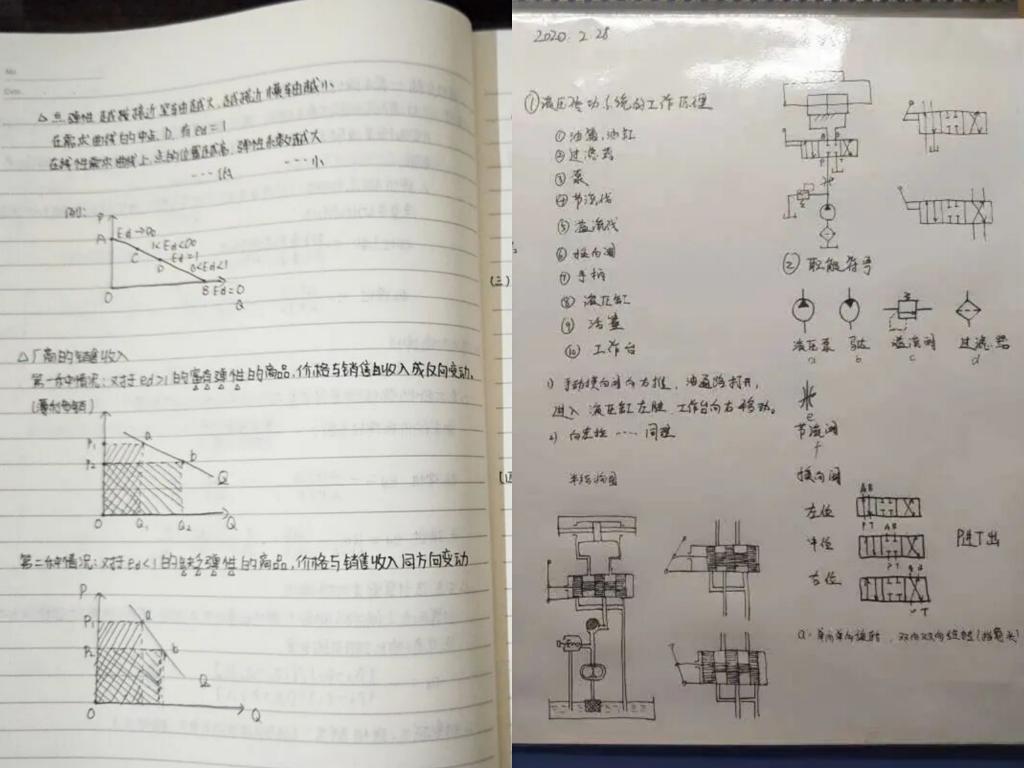 No.
Date.
△点弹性越接近 越大,越接近横轴越小
在需求曲线的中点D,有Ed=1
在线性需求曲线上,点的位置越高,弹性系数越大
……低 ……小
例:
P
A Ed→∞
1<Ed<∞
C Ed=1
D 0<Ed<1
O B Ed=0
Q
△厂商的销售收入
第一种情况:对于Ed>1的富有弹性的商品,价格与销售收入成反向变动。
(薄利多销)
P1 a
P2 b
Q
O Q1 Q2 Q
第二种情况:对于Ed<1的缺乏弹性的商品,价格与销售收入同方向变动
P
P1 a
P2 b
Q
O Q
(三)
2020.2.28
①液压传动系统的工作原理
①油箱,油缸
②过滤器
③泵
④节流伐
⑤溢流伐
⑥换向阀
⑦手柄
⑧液压缸
⑨活塞
⑩工作台
1)手动换向阀向右推,油通路打开,
进入液压缸左腔 工作台向右移动。
2)向左推……同理
半结构图
②职能符号
液压泵 马达 溢流阀 过滤器
a b c d
e
节流阀
f
换向阀
A B
左位
P T A B
中位 P进T出
P T
右位
T
a:单向单向旋转,双向双向旋转(指箭头)